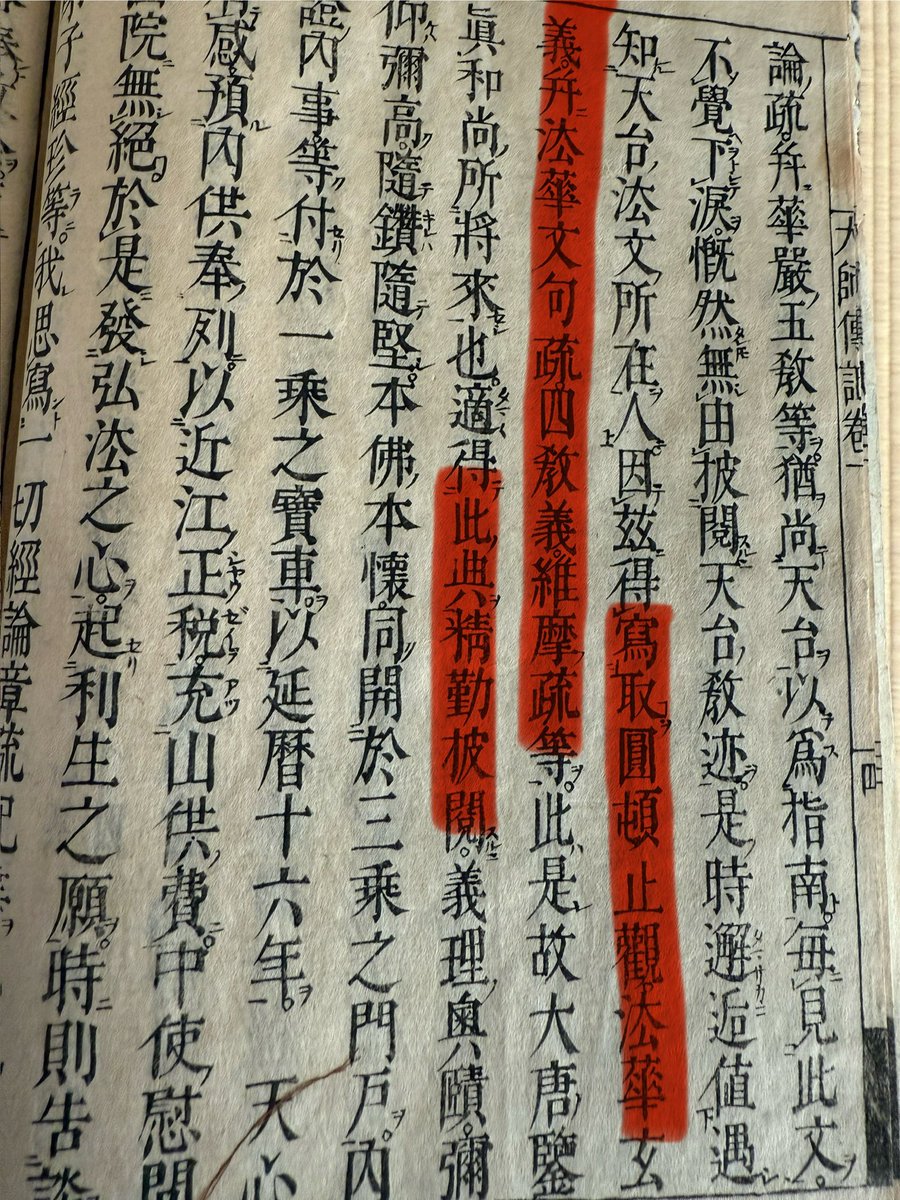 大師傳記卷一
論疏。幷華嚴五敎等。猶尚天台以爲指南。毎見此文
不覺下淚。慨然無由披閲天台敎迹。是時邂逅値遇
知天台法文所在人。因茲得寫取圓頓止觀。法華玄
義。幷法華文句疏。四敎義。維摩疏等。此是故大唐鑒
眞和尚所將來也。適得此典精勤披閲。義理奧賾。彌
仰彌高。隨鑽隨堅。本佛本懷。同開於三乘之門戸。內
證內事等付於一乘之寶車。以延暦十六年。　天心
有感。預內供奉列。以近江正税。充山供費。中使慰問
山院無絕。於是發弘法之心。起利生之願。時則告談
弟子經珍等。我思寫一切經論章疏記等